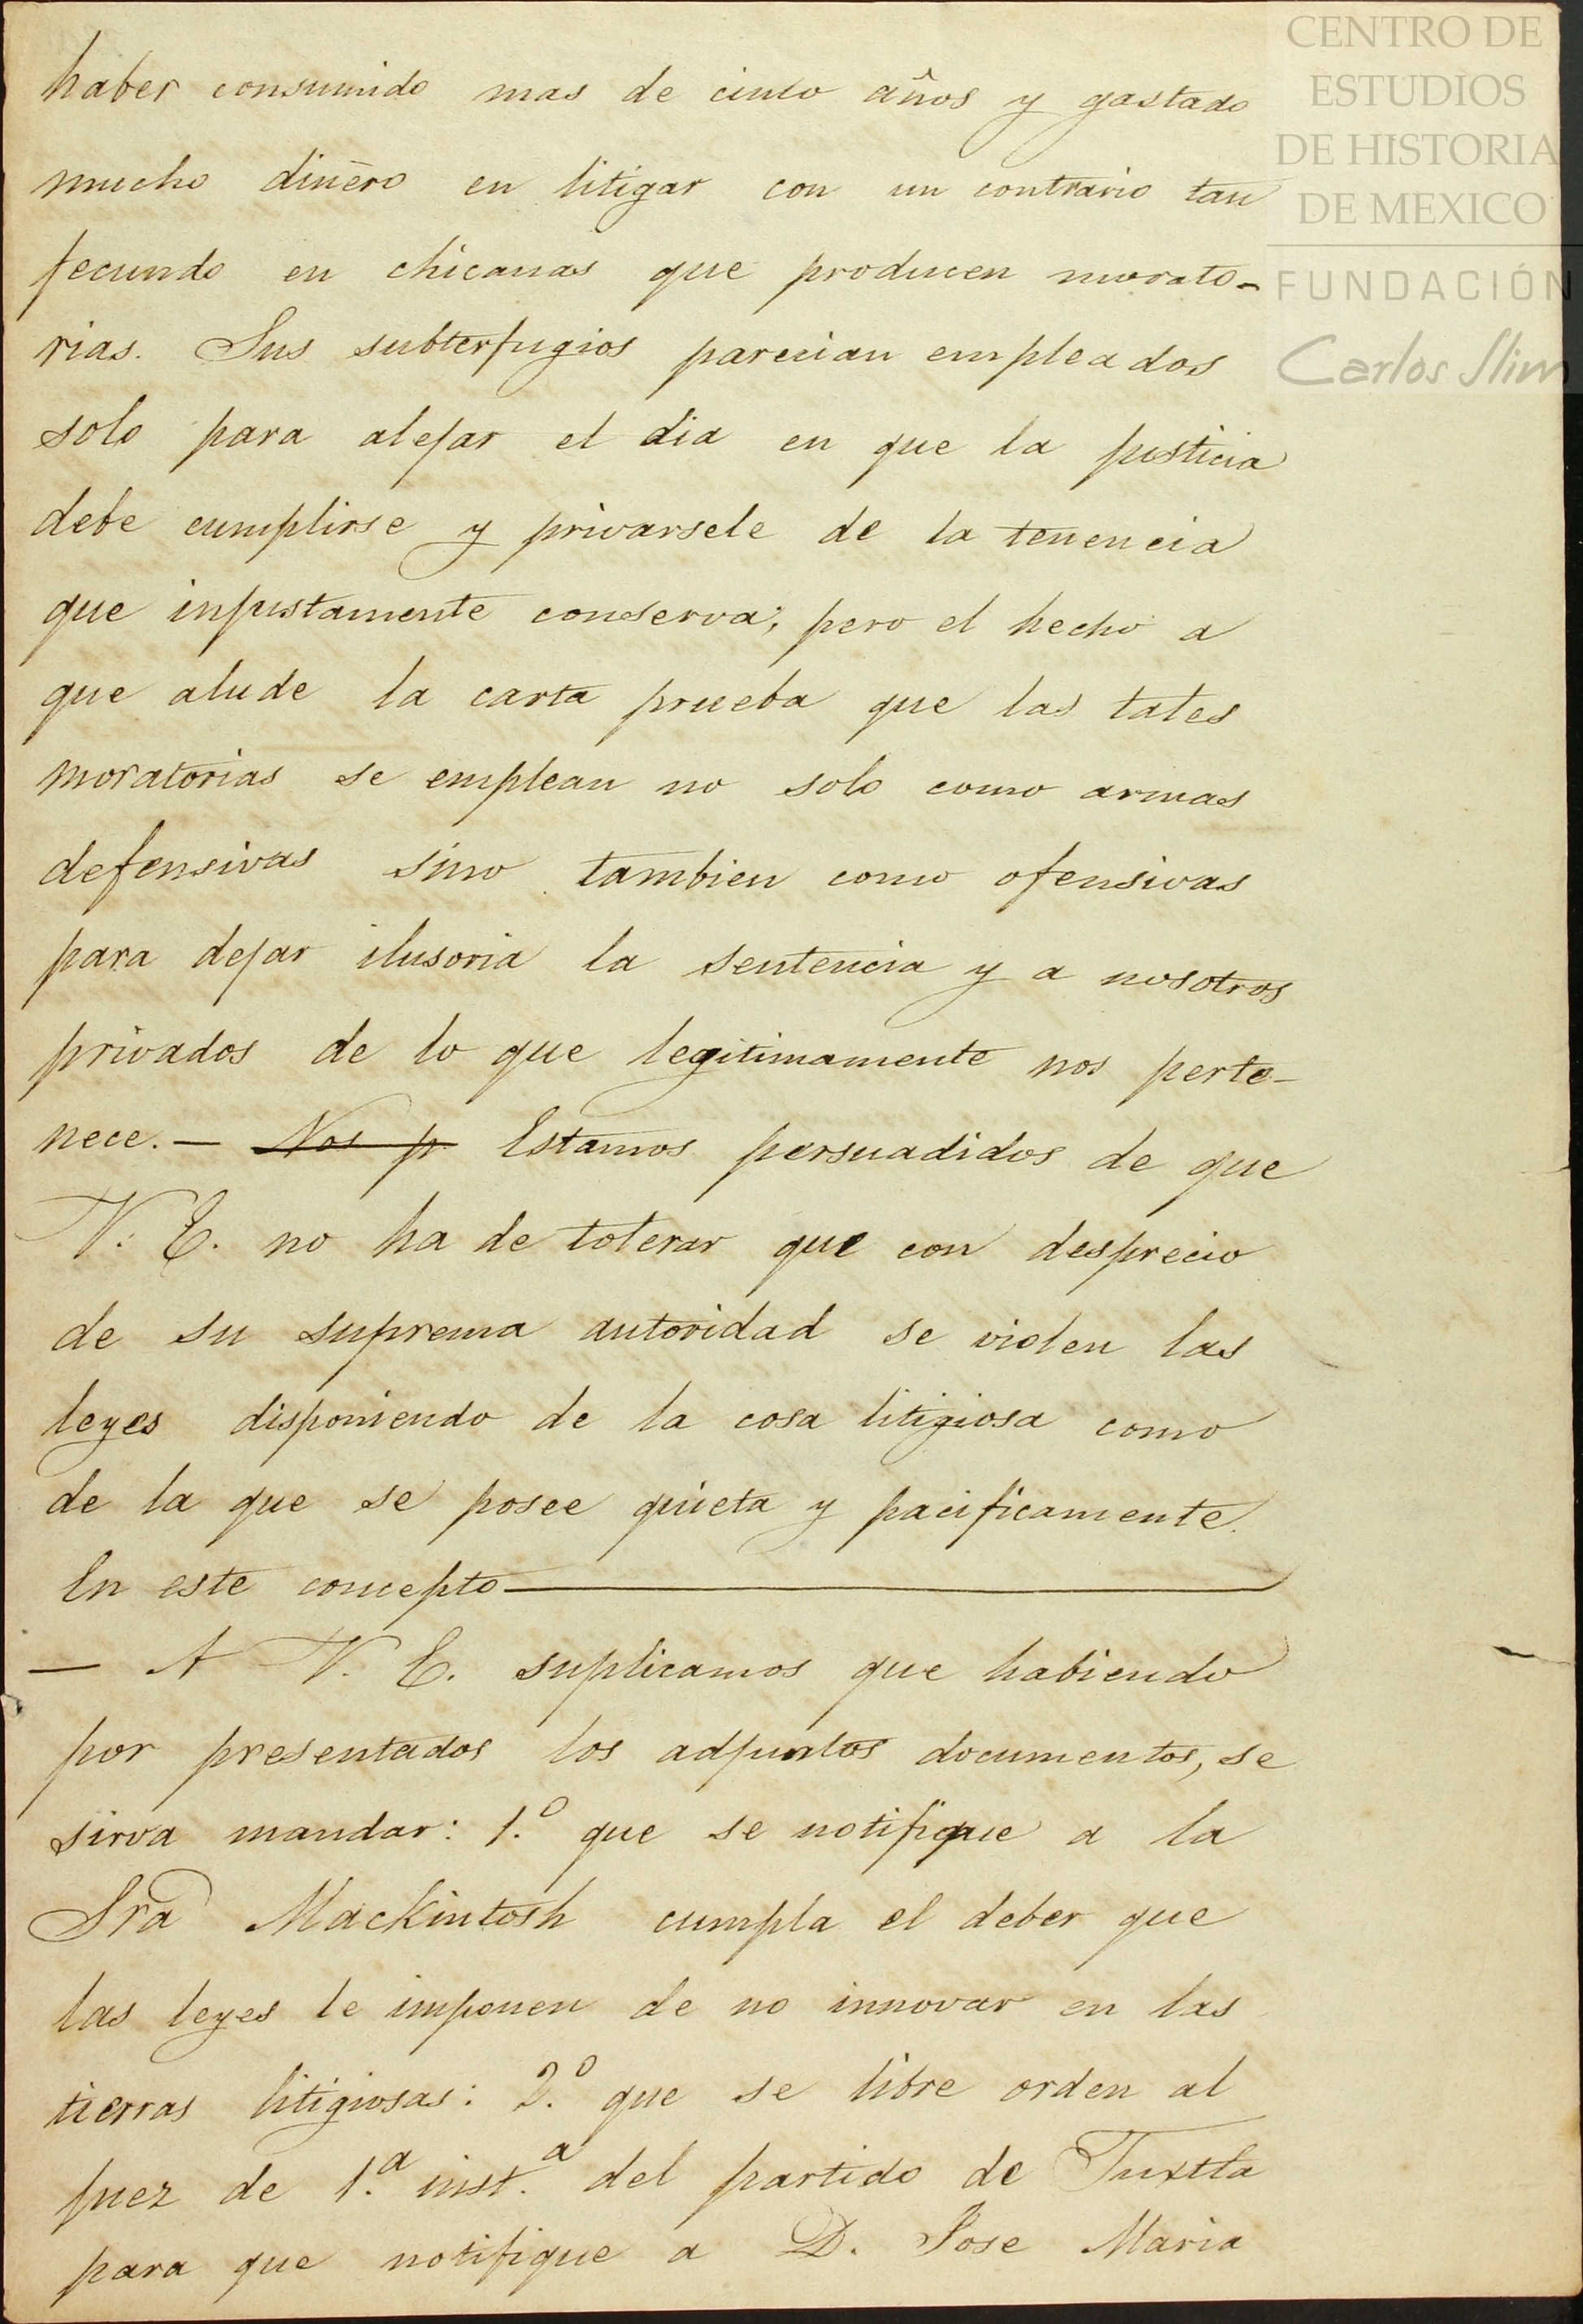 CENTRO DE
ESTUDIOS
DE HISTORIA
DE MEXICO
FUNDACIÓN
Carlos Slim
haber consumido mas de cinco años y gastado
mucho dinero en litigar con un contrario tan
fecundo en chicanas que producen morato-
rias. Sus subterfugios parecian empleados
solo para alejar el dia en que la justicia
debe cumplirse y privarsele de la tenencia
que injustamente conserva; pero el hecho a
que alude la carta prueba que las tales
moratorias se emplean no solo como armas
defensivas sino tambien como ofensivas
para dejar ilusoria la sentencia y a nosotros
privados de lo que legitimamente nos perte-
nece. — Nos p Estamos persuadidos de que
V. E. no ha de tolerar que con desprecio
de su suprema autoridad se violen las
leyes disponiendo de la cosa litigiosa como
de la que se posee quieta y pacificamente.
En este concepto—
— A V. E. suplicamos que habiendo
por presentados los adjuntos documentos, se
sirva mandar: 1.º que se notifique a la
Sra Mackintosh cumpla el deber que
las leyes le imponen de no innovar en las
tierras litigiosas: 2.º que se libre orden al
juez de 1.ª inst.ª del partido de Tuxtla
para que notifique a D. Jose Maria